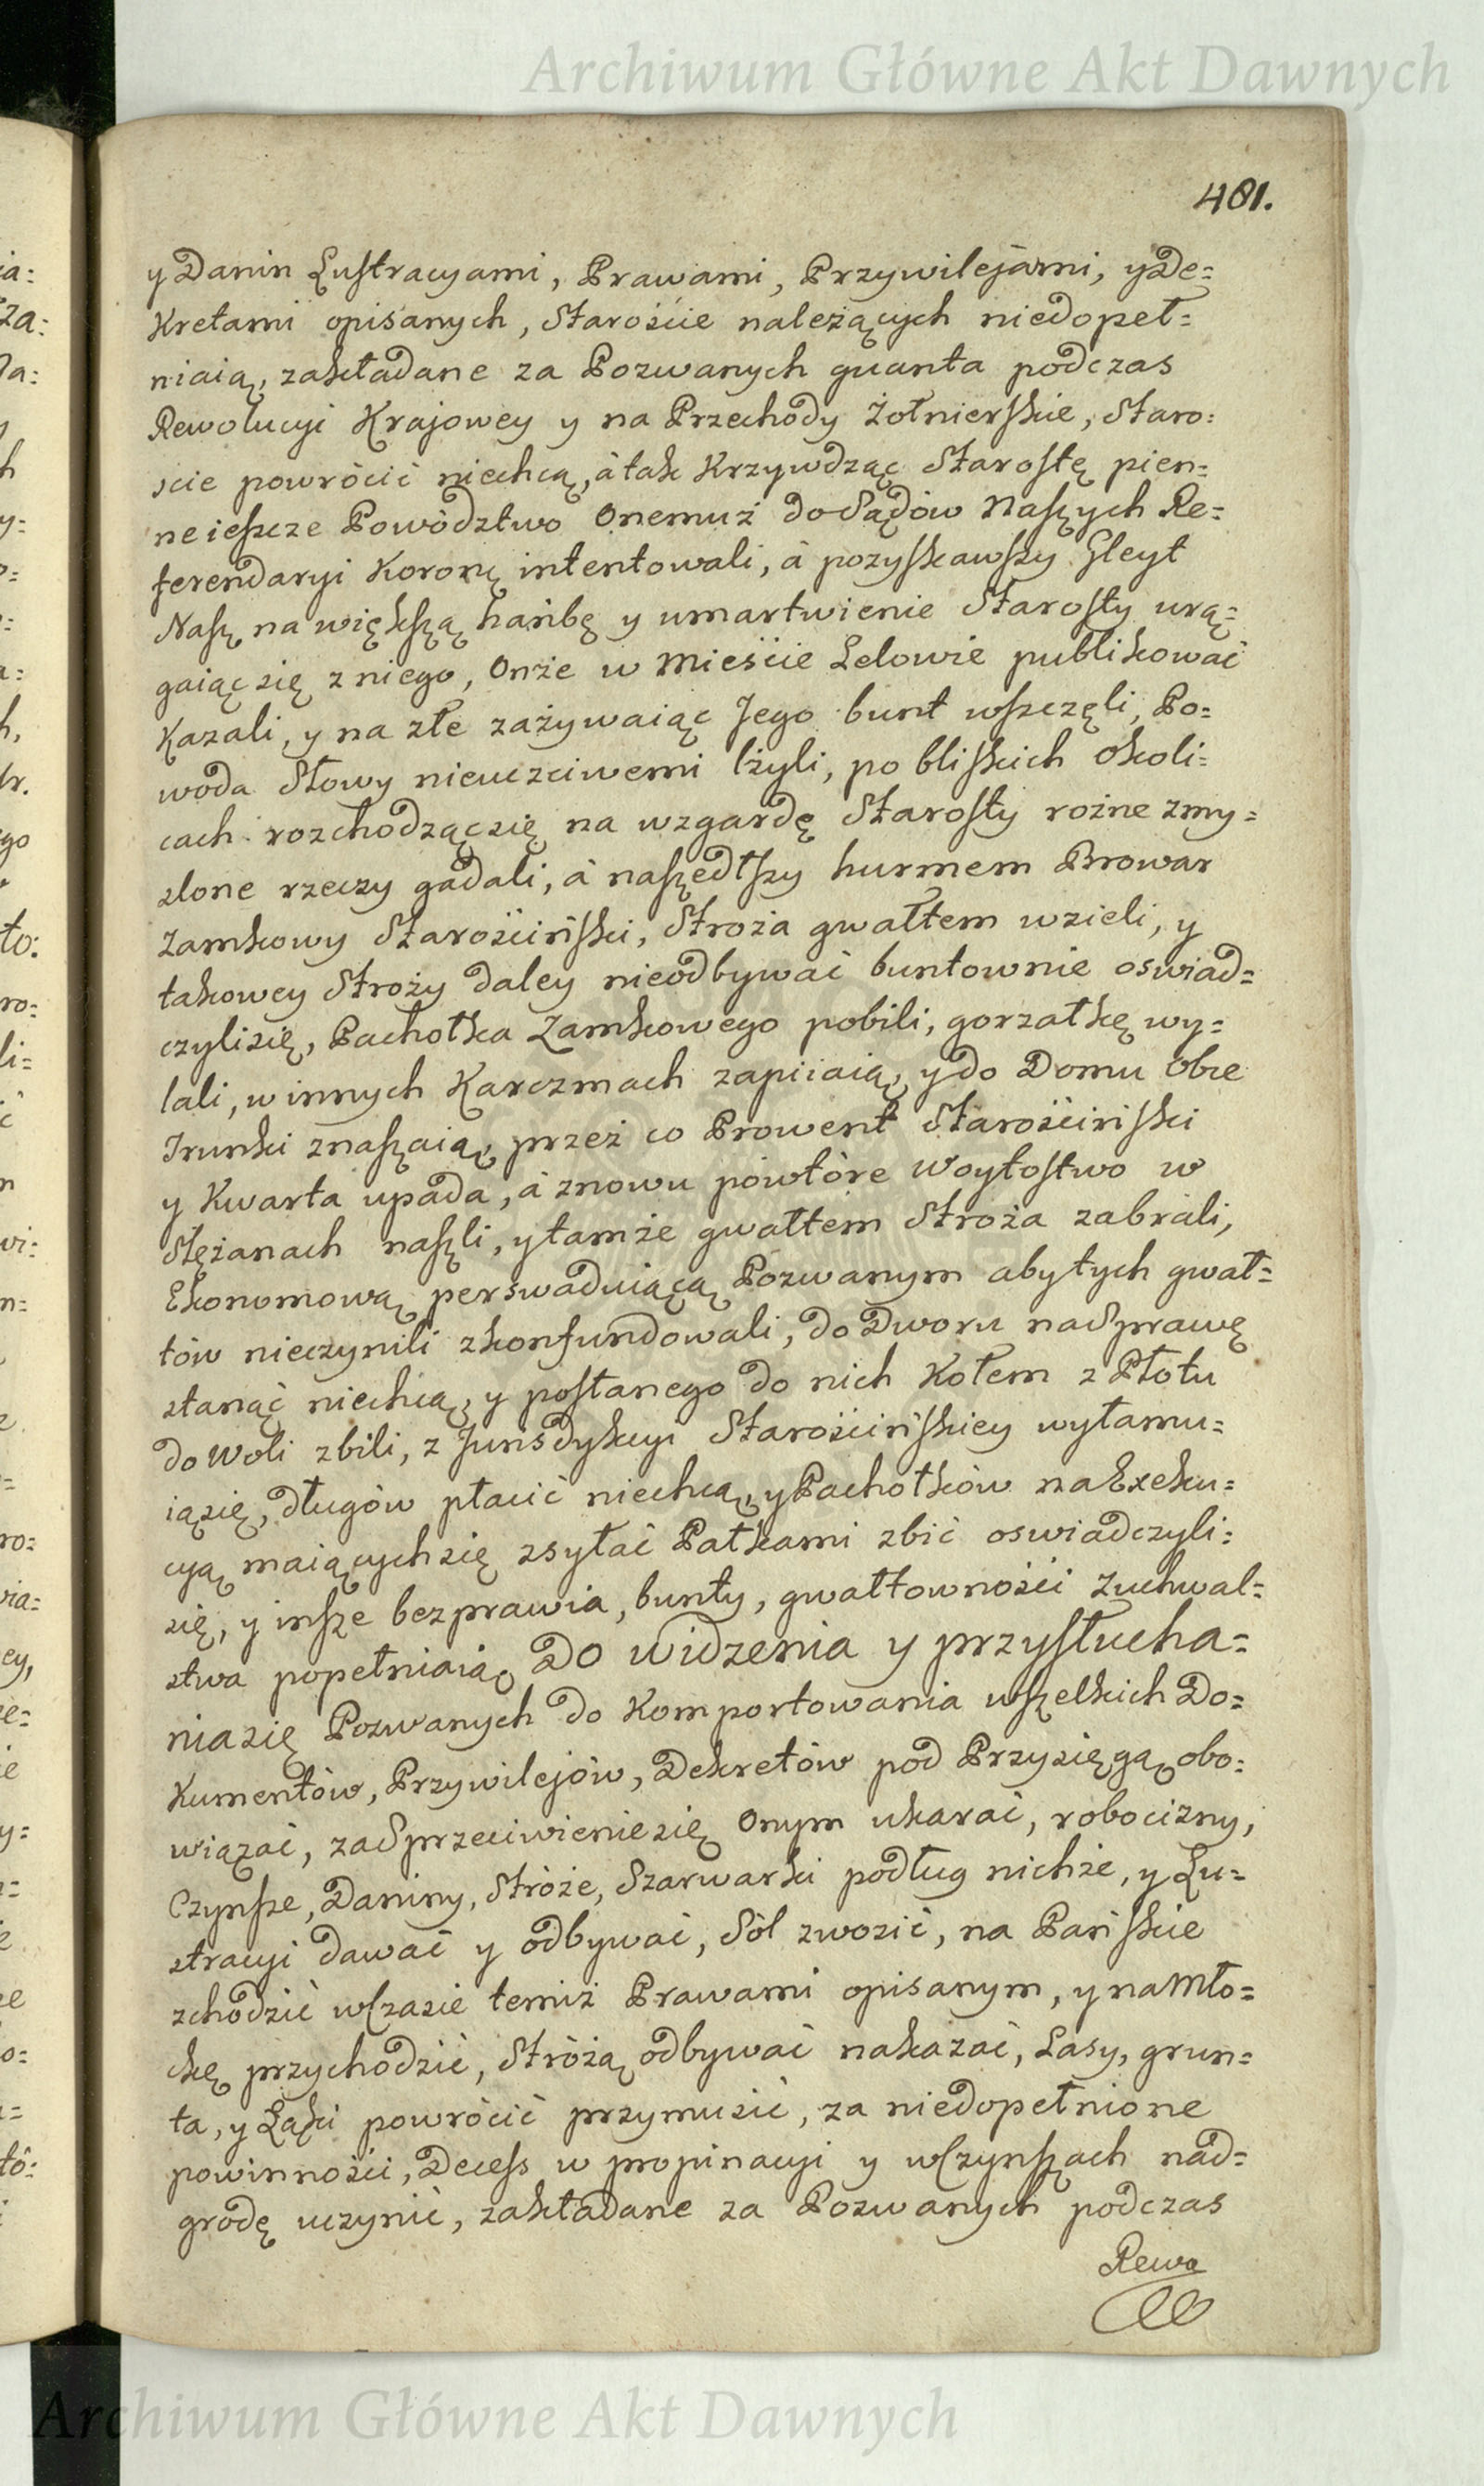 Archiwum Główne Akt Dawnych
481.
y Danin Lustracyami, Prawami, Przywilejami, y De=
kretami opisanych, Starośćie należących niedopeł=
niaią, zakładane za Pozwanych quanta podczas
Rewolucyi Krajowey y na Przechody Żołnierskie, Staro=
scie powrócić niechcą, á tak Krzywdząc Starostę pien=
ne ieszcze Powództwo Onemuż do Sądów Naszych Re=
ferendaryi Koronę intentowali, á pozyskawszy Gleyt
Nasz na większą hańbę y umartwienie Starosty urą=
gaiąc się z niego, Onże w Mieśćie Lelowie publikować
Kazali, y na złe zażywaiąc Jego bunt wszczęli, Po=
woda Słowy nieuczciwemi lżyli, po bliskich okoli=
cach rozchodząc się na wzgardę Starosty rożne zmy=
slone rzeczy gadali, á naszedłszy hurmem Browar
Zamkowy Starośćiński, Stroża gwałtem wzieli, y
takowey Stroży daley nieodbywać buntownie oswiad=
czyli się, Pachołka Zamkowego pobili, gorzałkę wy=
lali, w innych Karczmach zapiiaią, y do Domu obce
Trunki znaszaią, przez co Prowent Starośćiński
y Kwarta upada, á znowu powtóre Woytostwo w
Slężanach naszli, y tamże gwałtem Stroża zabrali,
Ekonomową perswaduiącą Pozwanym aby tych gwał=
tów nieczynili zkonfundowali, do Dworu na Sprawę
stanąć niechcą, y posłanego do nich Kołem z Płotu
do Woli zbili, z Jurisdykcyi Starośćińskiey wyłamu=
ią się, długów płacić niechcą, y Pachołków na Exeku=
cyą maiących się zsyłać Pałkami zbić oswiadczyli=
się, y insze bezprawia, bunty, gwałtownośći Zuchwal=
stwa popełniaią Do widzenia y przysłucha=
nia się Pozwanych do Komportowania wszelkich Do=
kumentów, Przywilejów, Dekretów pod Przysięgą obo=
wiązać, za Sprzeciwienie się Onym ukarać, robocizny,
Czynsze, Daniny, Stróże, Szarwarki podług nichże, y Lu=
stracyi dawać y odbywać, Sól zwozić, na Pańskie
zchodzić w Czasie temiż Prawami opisanym, y na Mło=
ckę przychodzić, Stróżą odbywać nakazać, Lasy, grun=
ta, y Łąki powrócić przymusić, za niedopełnione
powinnośći, Decess w propinacyi y w Czynszach nad=
grodę uczynić, zakładane za Pozwanych podczas
Rewo
Archiwum Główne Akt Dawnych